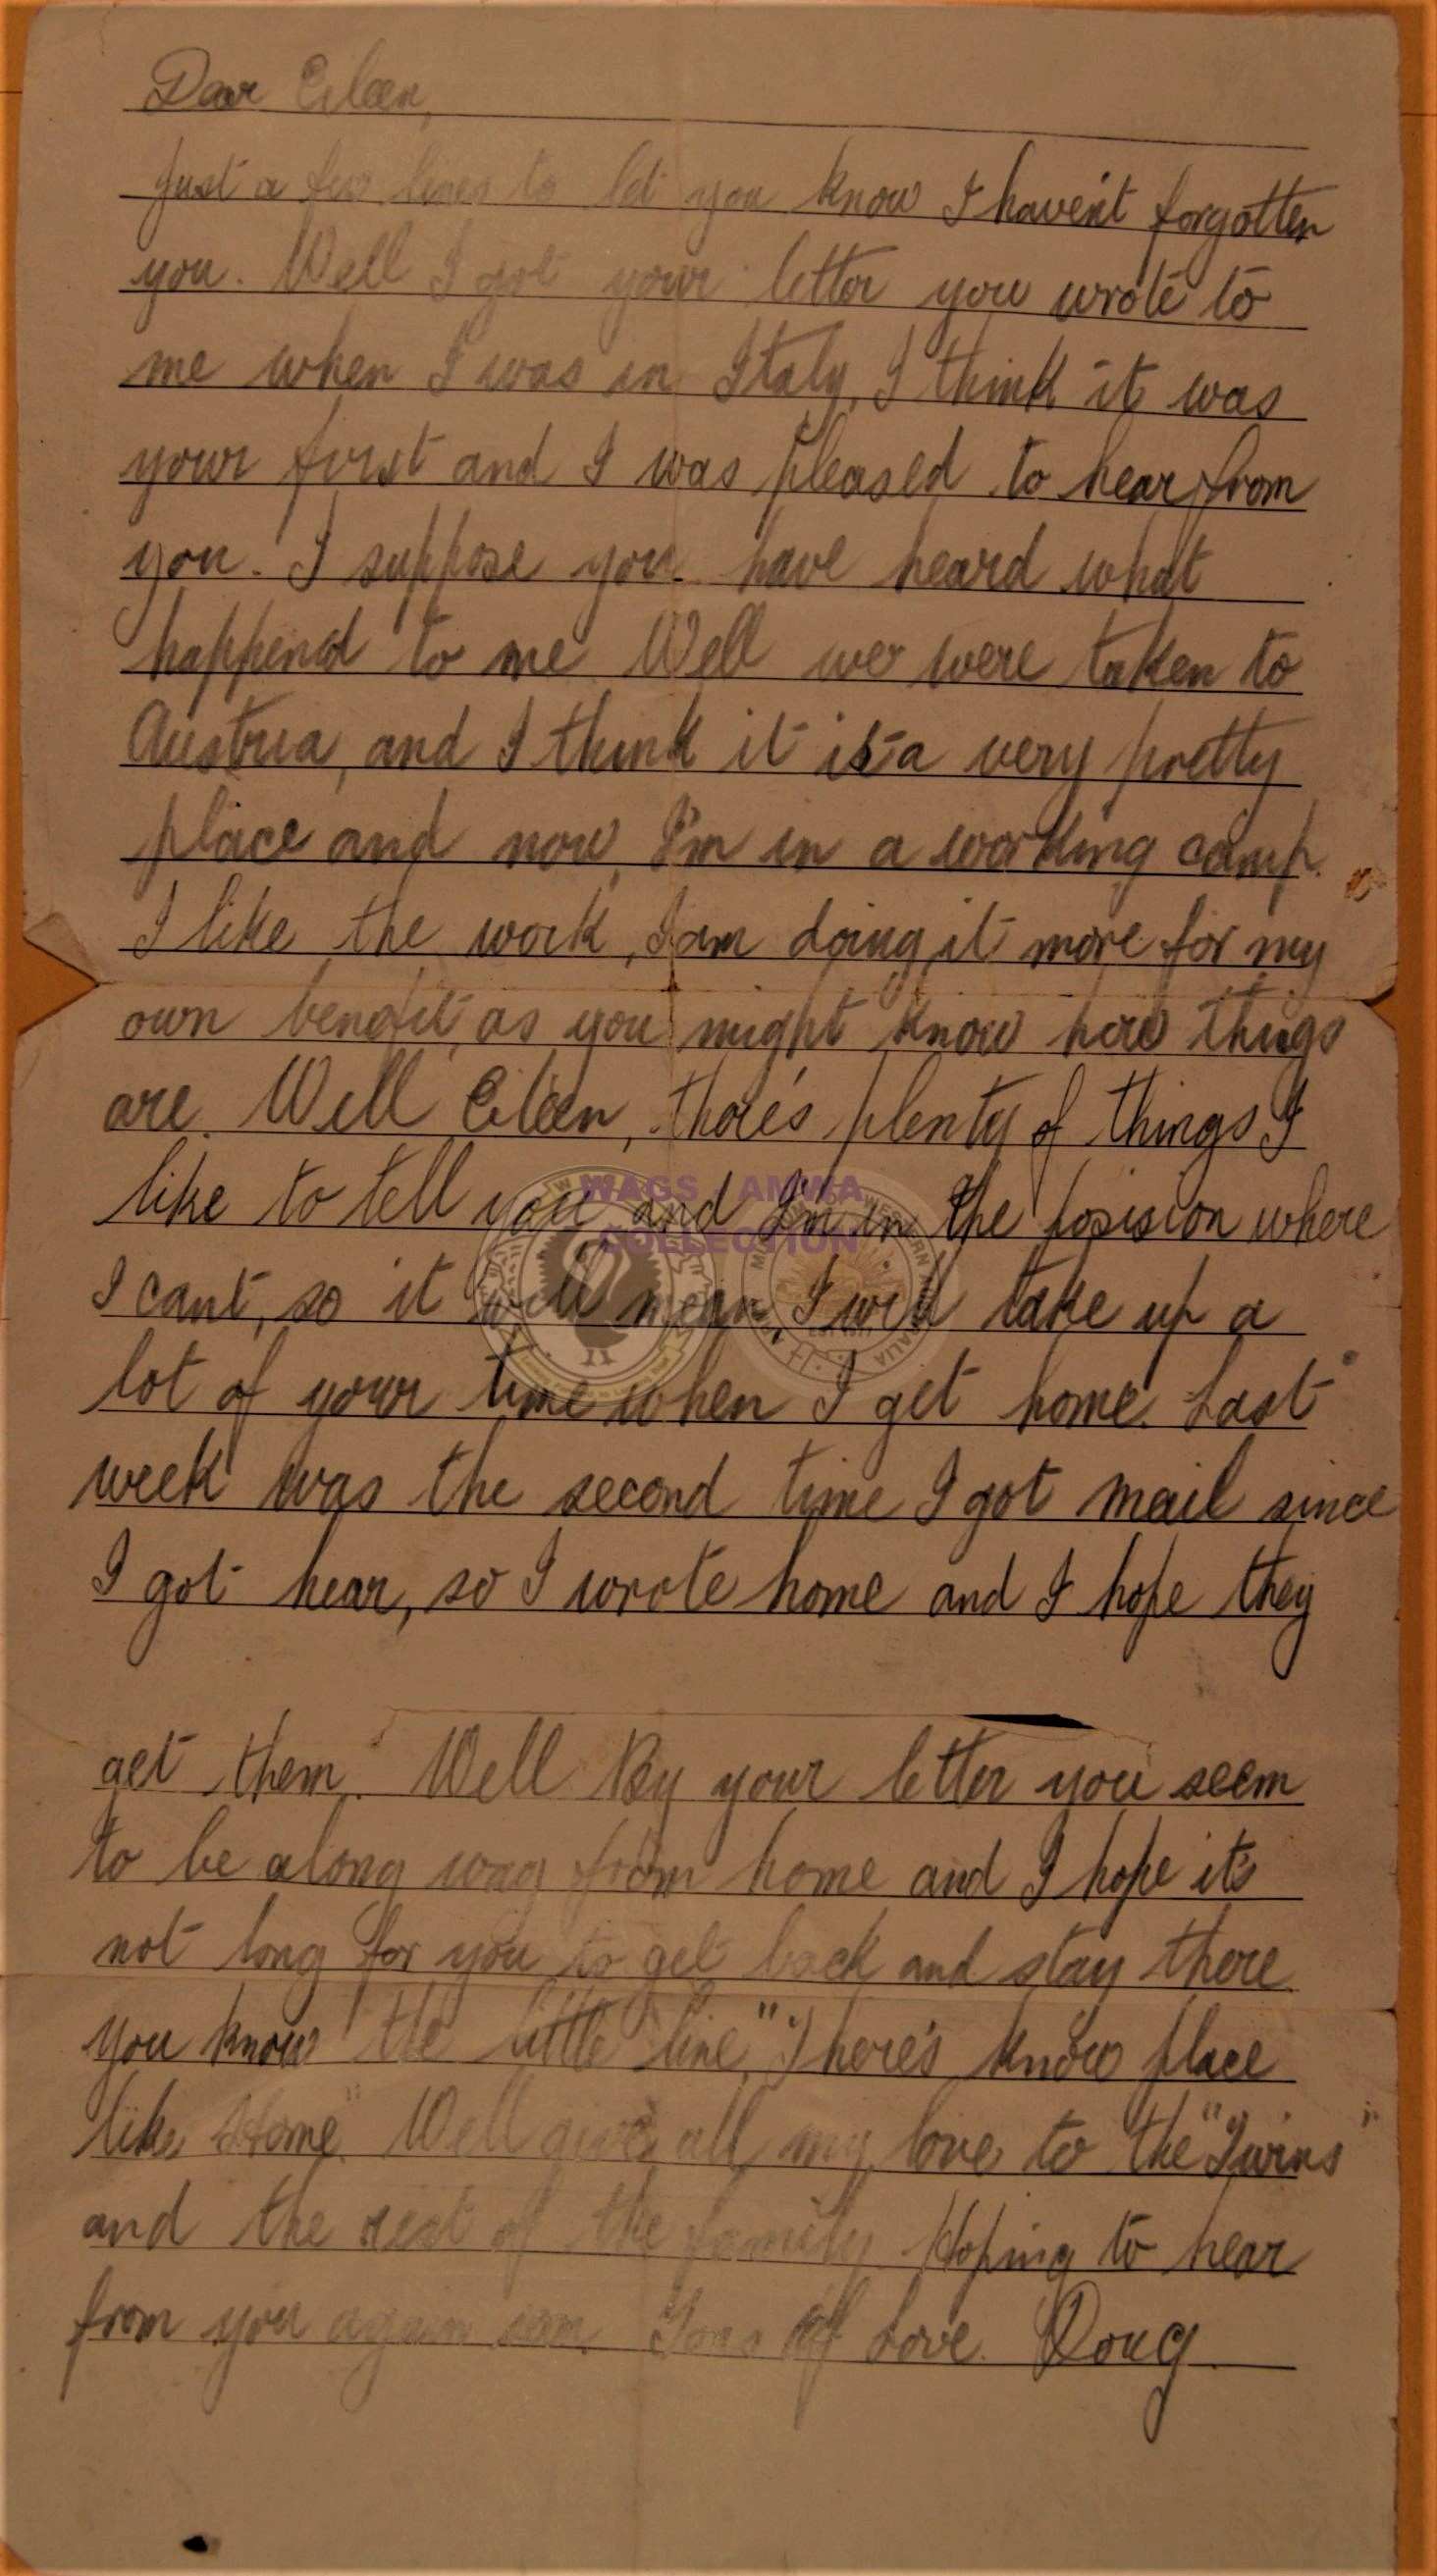 Dear Eileen,
Just a few lines to let you know I haven't forgotten
you. Well I got your letter you wrote to
me when I was in Italy, I think it was
your first and I was pleased to hear from
you. I suppose you have heard what
happend to me Well we were taken to
Austria, and I think it is a very pretty
place and now, I'm in a working camp.
I like the work, I am doing it more for my
own benefit, as you might know how things
are. Well Eileen, there's plenty of things I
like to tell you and I'm in the posision where
I cant, so it will mean, I will take up a
lot of your time when I get home. Last
week was the second time I got mail since
I got hear, so I wrote home and I hope they
get them. Well By your letter you seem
to be along way from home and I hope it's
not long for you to get back and stay there
you know the little line, "There's know place
like Home" Well give all my love to the "Twins"
and the rest of the family Hoping to hear
from you again Tons of Love. Doug
WAGS AMWA
COLLECTION